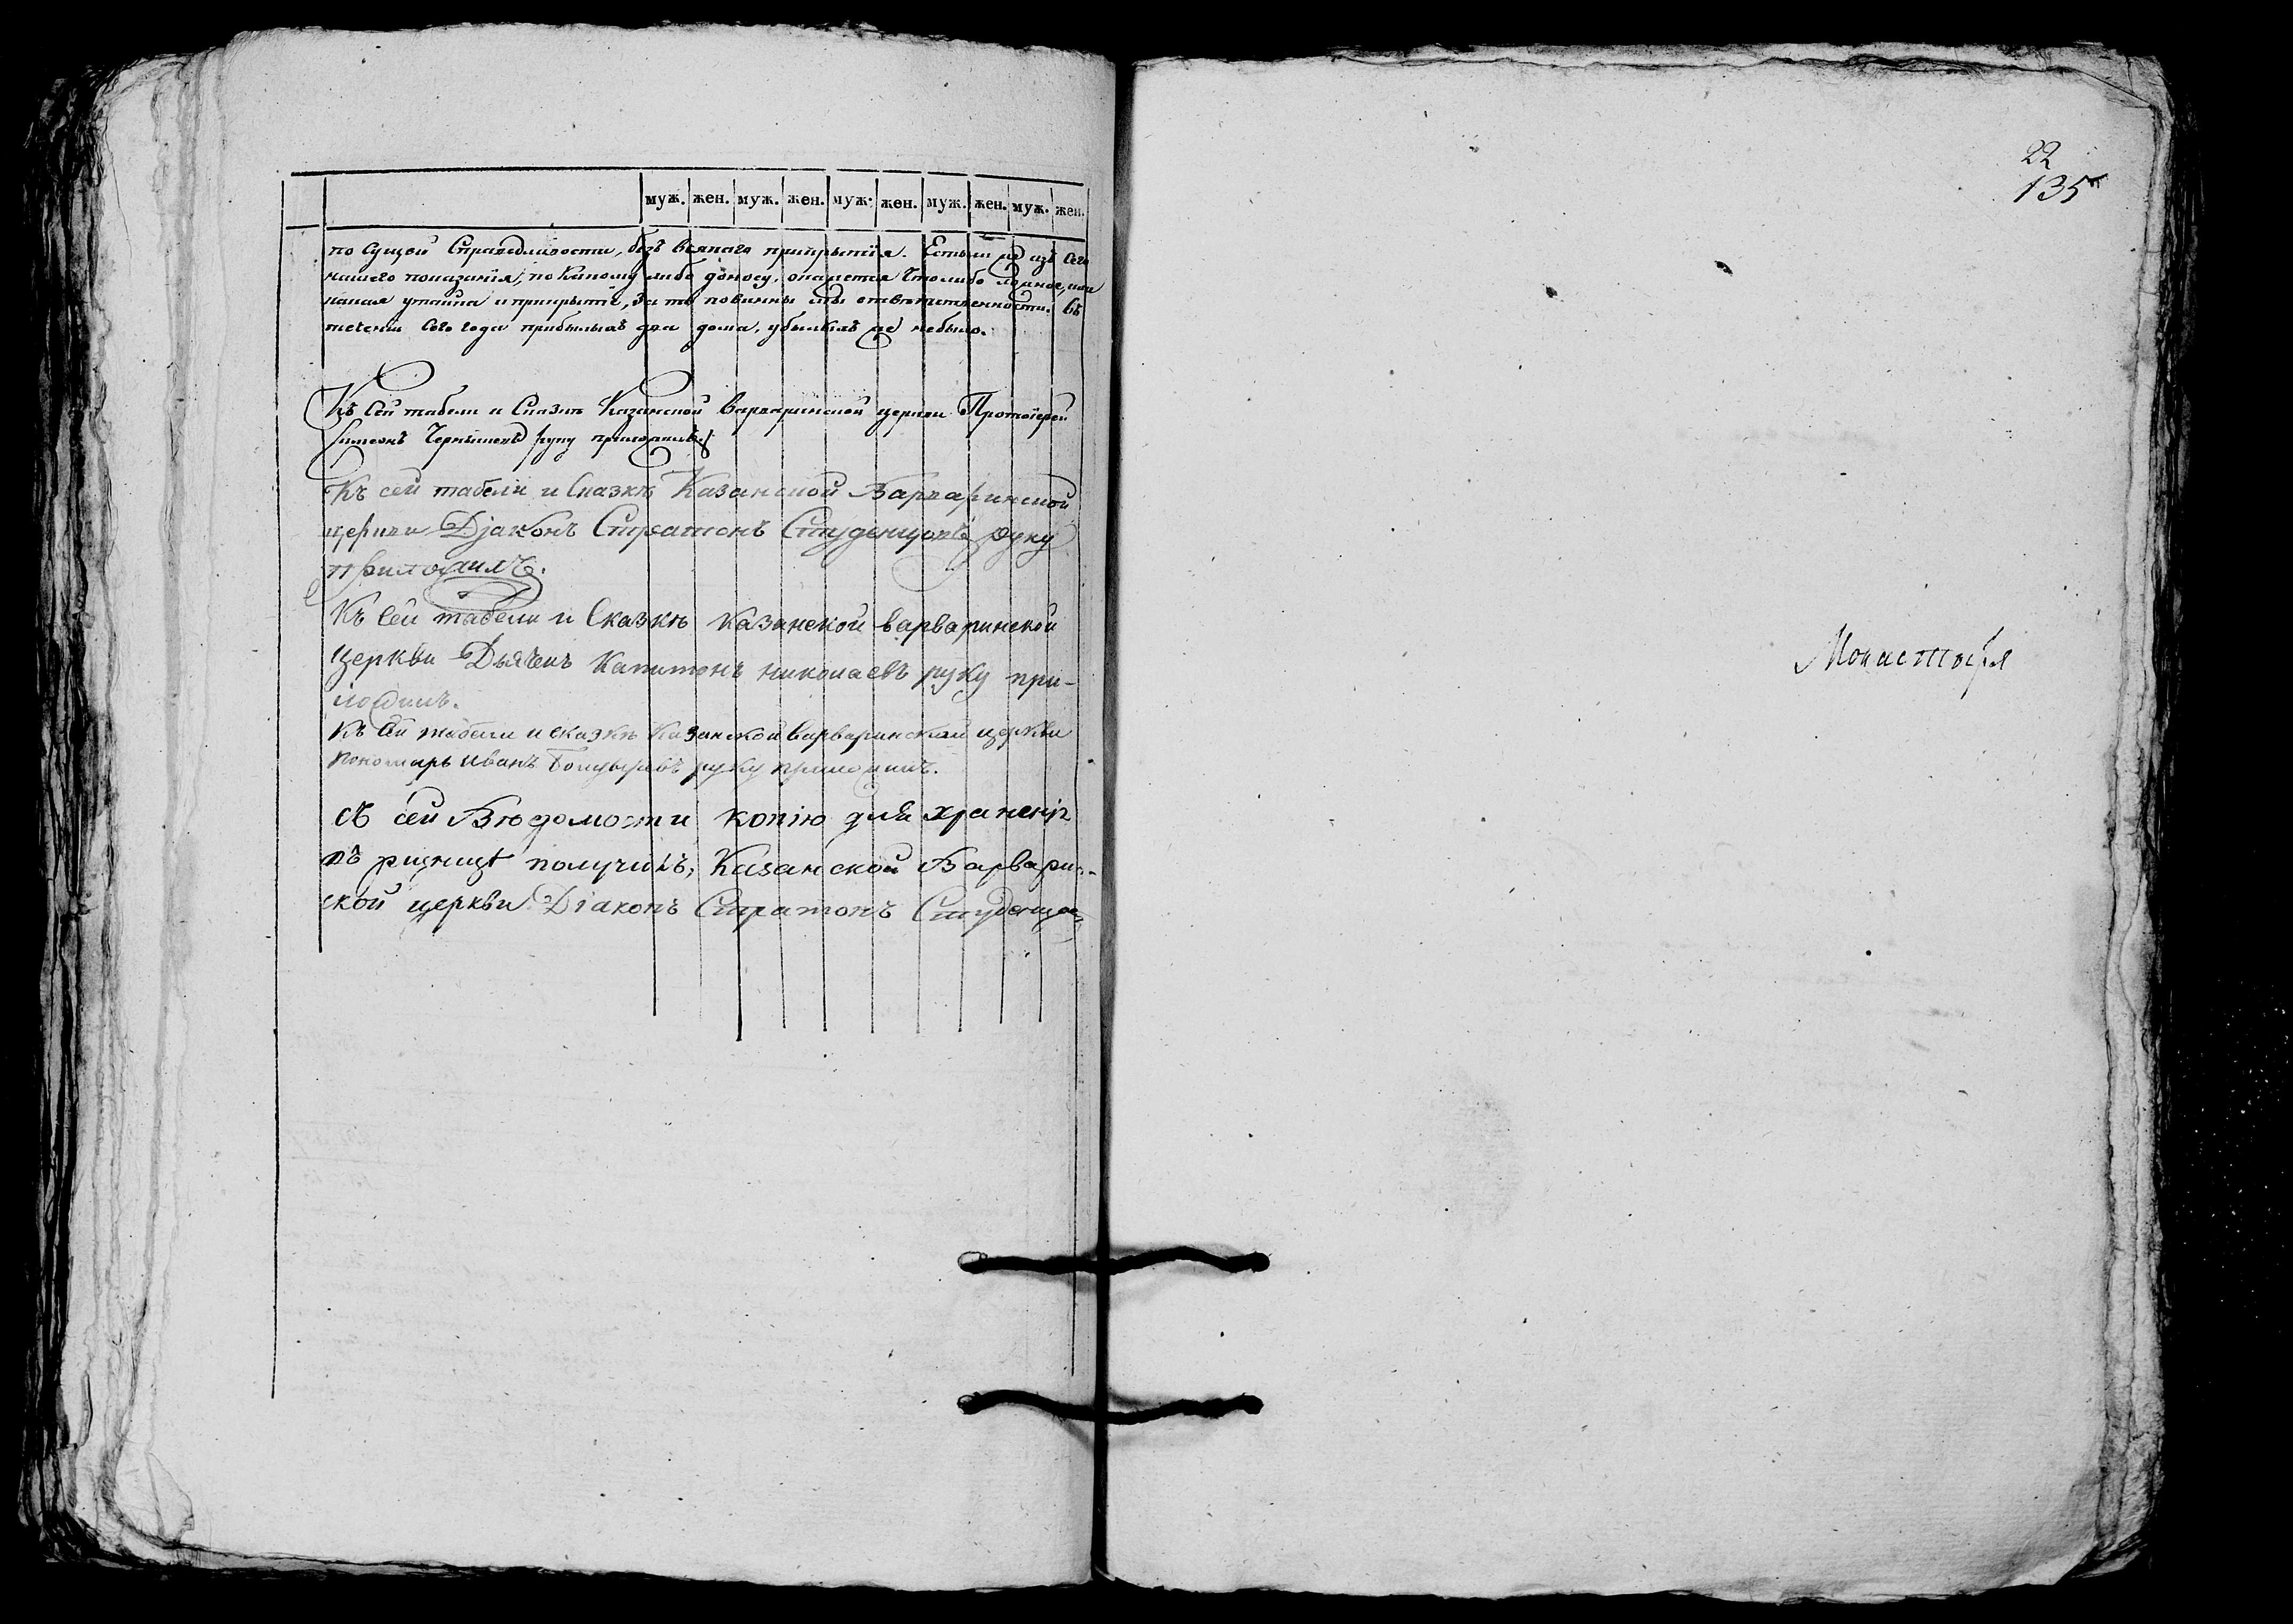 муж. жен. муж. жен. муж. жен. муж. жен. муж. жен.
по сущей Справедливости, безъ всякаго прикрытїя. Естьли же изъ Сего
нашего показанїя, по какому либо доносу, окажется Что либо ложное, или
какая утайка и прикрытїе, за то повинны мы ответственности. Въ
теченїи Сего года прибылыхъ два дома, убылыхъ же небыло.
Къ Сей табели и Сказкѣ Казанской Варваринской церкви Протоїерей
Симеонъ руку приложилъ
Къ сей табели и Сказкѣ Казанской Варваринской
церкви Дjаконъ Стратонъ Студенцовъ руку
приложилъ.
Къ Сей табели и Сказкѣ Казанской варваринской
церкви Дьячекъ Капитонъ николаевъ руку при-
ложилъ.
Къ Сей табели и сказкѣ Казанской варваринской церкви
пономарь Иванъ руку приложилъ.
Съ сей Вѣдомости копїю для храненія
въ ризницѣ получилъ, Казанской Варварин-
ской церкви Дїаконъ Стратонъ Студенцовъ
22
135
Монастыря